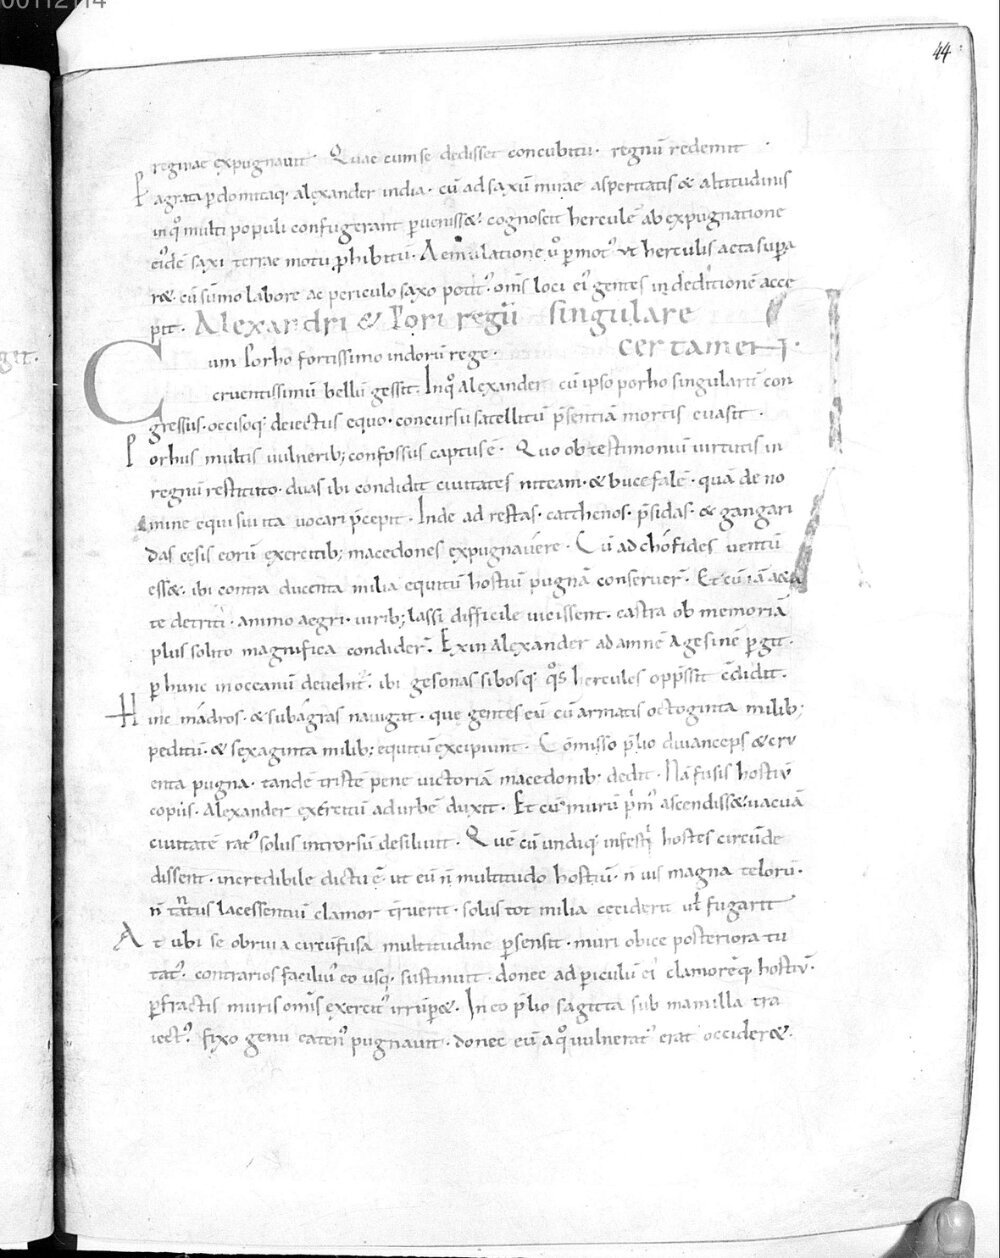 44
reginae expugnavit. Quae cum se dedisset concubitu. regnū redemit.
Pagrata pdomitaq; alexander india. cū ad saxū mirae asperitatis & altitudinis
in q̊ multi populi confugerant pueniss&. cognoscit herculē ab expugnatione
eiꝰdē saxi terrae motu phibitū. Aemulatione ū pmotꝰ ut herculis acta supa
r&. cū sūmo labore ac periculo saxo potitꝰ. oms̄ loci eiꝰ gentes in deditionē acce
pit. Alexandri & Pori regū singulare
certamen.
Cum Porho fortissimo indorū rege.
cruentissimū bellū gessit. In q̊ alexander cū ipso porho singularit̄ con
gressus. occisoq; deiectus equo. concursu satellitū p̄sentiā mortis evasit.
Porhus multis vulnerib; confossus captus ē. Quo ob testimoniū virtutis in
regnū restituto. duas ibi condidit civitates niceam. & bucefalē. quā de no
mine equi sui ita vocari p̄cepit. Inde ad restas. catthenos. p̄sidas. & gangari
das cęsis eorū exercitib; macedones expugnavere. Cū ad chofides ventū
ess&. ibi contra ducenta milia equitū hostiū pugnā conseruer̄. Et cū iā aeta
te detriti. animo aegri. virib; lassi difficile vicissent. castra ob memoriā
plus solito magnifica condider̄. Exin alexander ad amnē Agesinē pgit.
p hunc in oceanū devehit̄. ibi gesonas sibosq; q̊s hercules opp̄ssit c̄didit.
Hinc mádros. & subágras navigat. quę gentes eū cū armatis octoginta milib;
peditū. & sexaginta milib; equitū excipiunt. Cōmisso p̄lio diu anceps & cru
enta pugna. tandē tristē pene victoriā macedonib; dedit. Nā fusis hostiū
copiis. Alexander exercitū ad urbē duxit. Et cū murū p̄mꝰ ascendiss&. vacuā
civitatē ratꝰ solus introrsū desiluit. Quē cū undiq; infesti hostes circūde
dissent. incredibile dictu ē. ut eū n̄ multitudo hostiū. n̄ vis magna telorū.
n̄ tantus lacessentiū clamor t̄ruerit. solus tot milia ceciderit ut̄ fugarit
At ubi se obrui a circūfusa multitudine psensit. muri obice posteriora tu
tatꝰ. contrarios faciliꝰ eo usq; sustinuit. donec ad piculū eiꝰ clamorēq; hostiū.
pfractis muris omīs exercitꝰ irrūp&. In eo p̄lio sagitta sub mamilla tra
iectꝰ. fixo genu eatenꝰ pugnavit. donec eū a q̊ vulneratꝰ erat occider&.